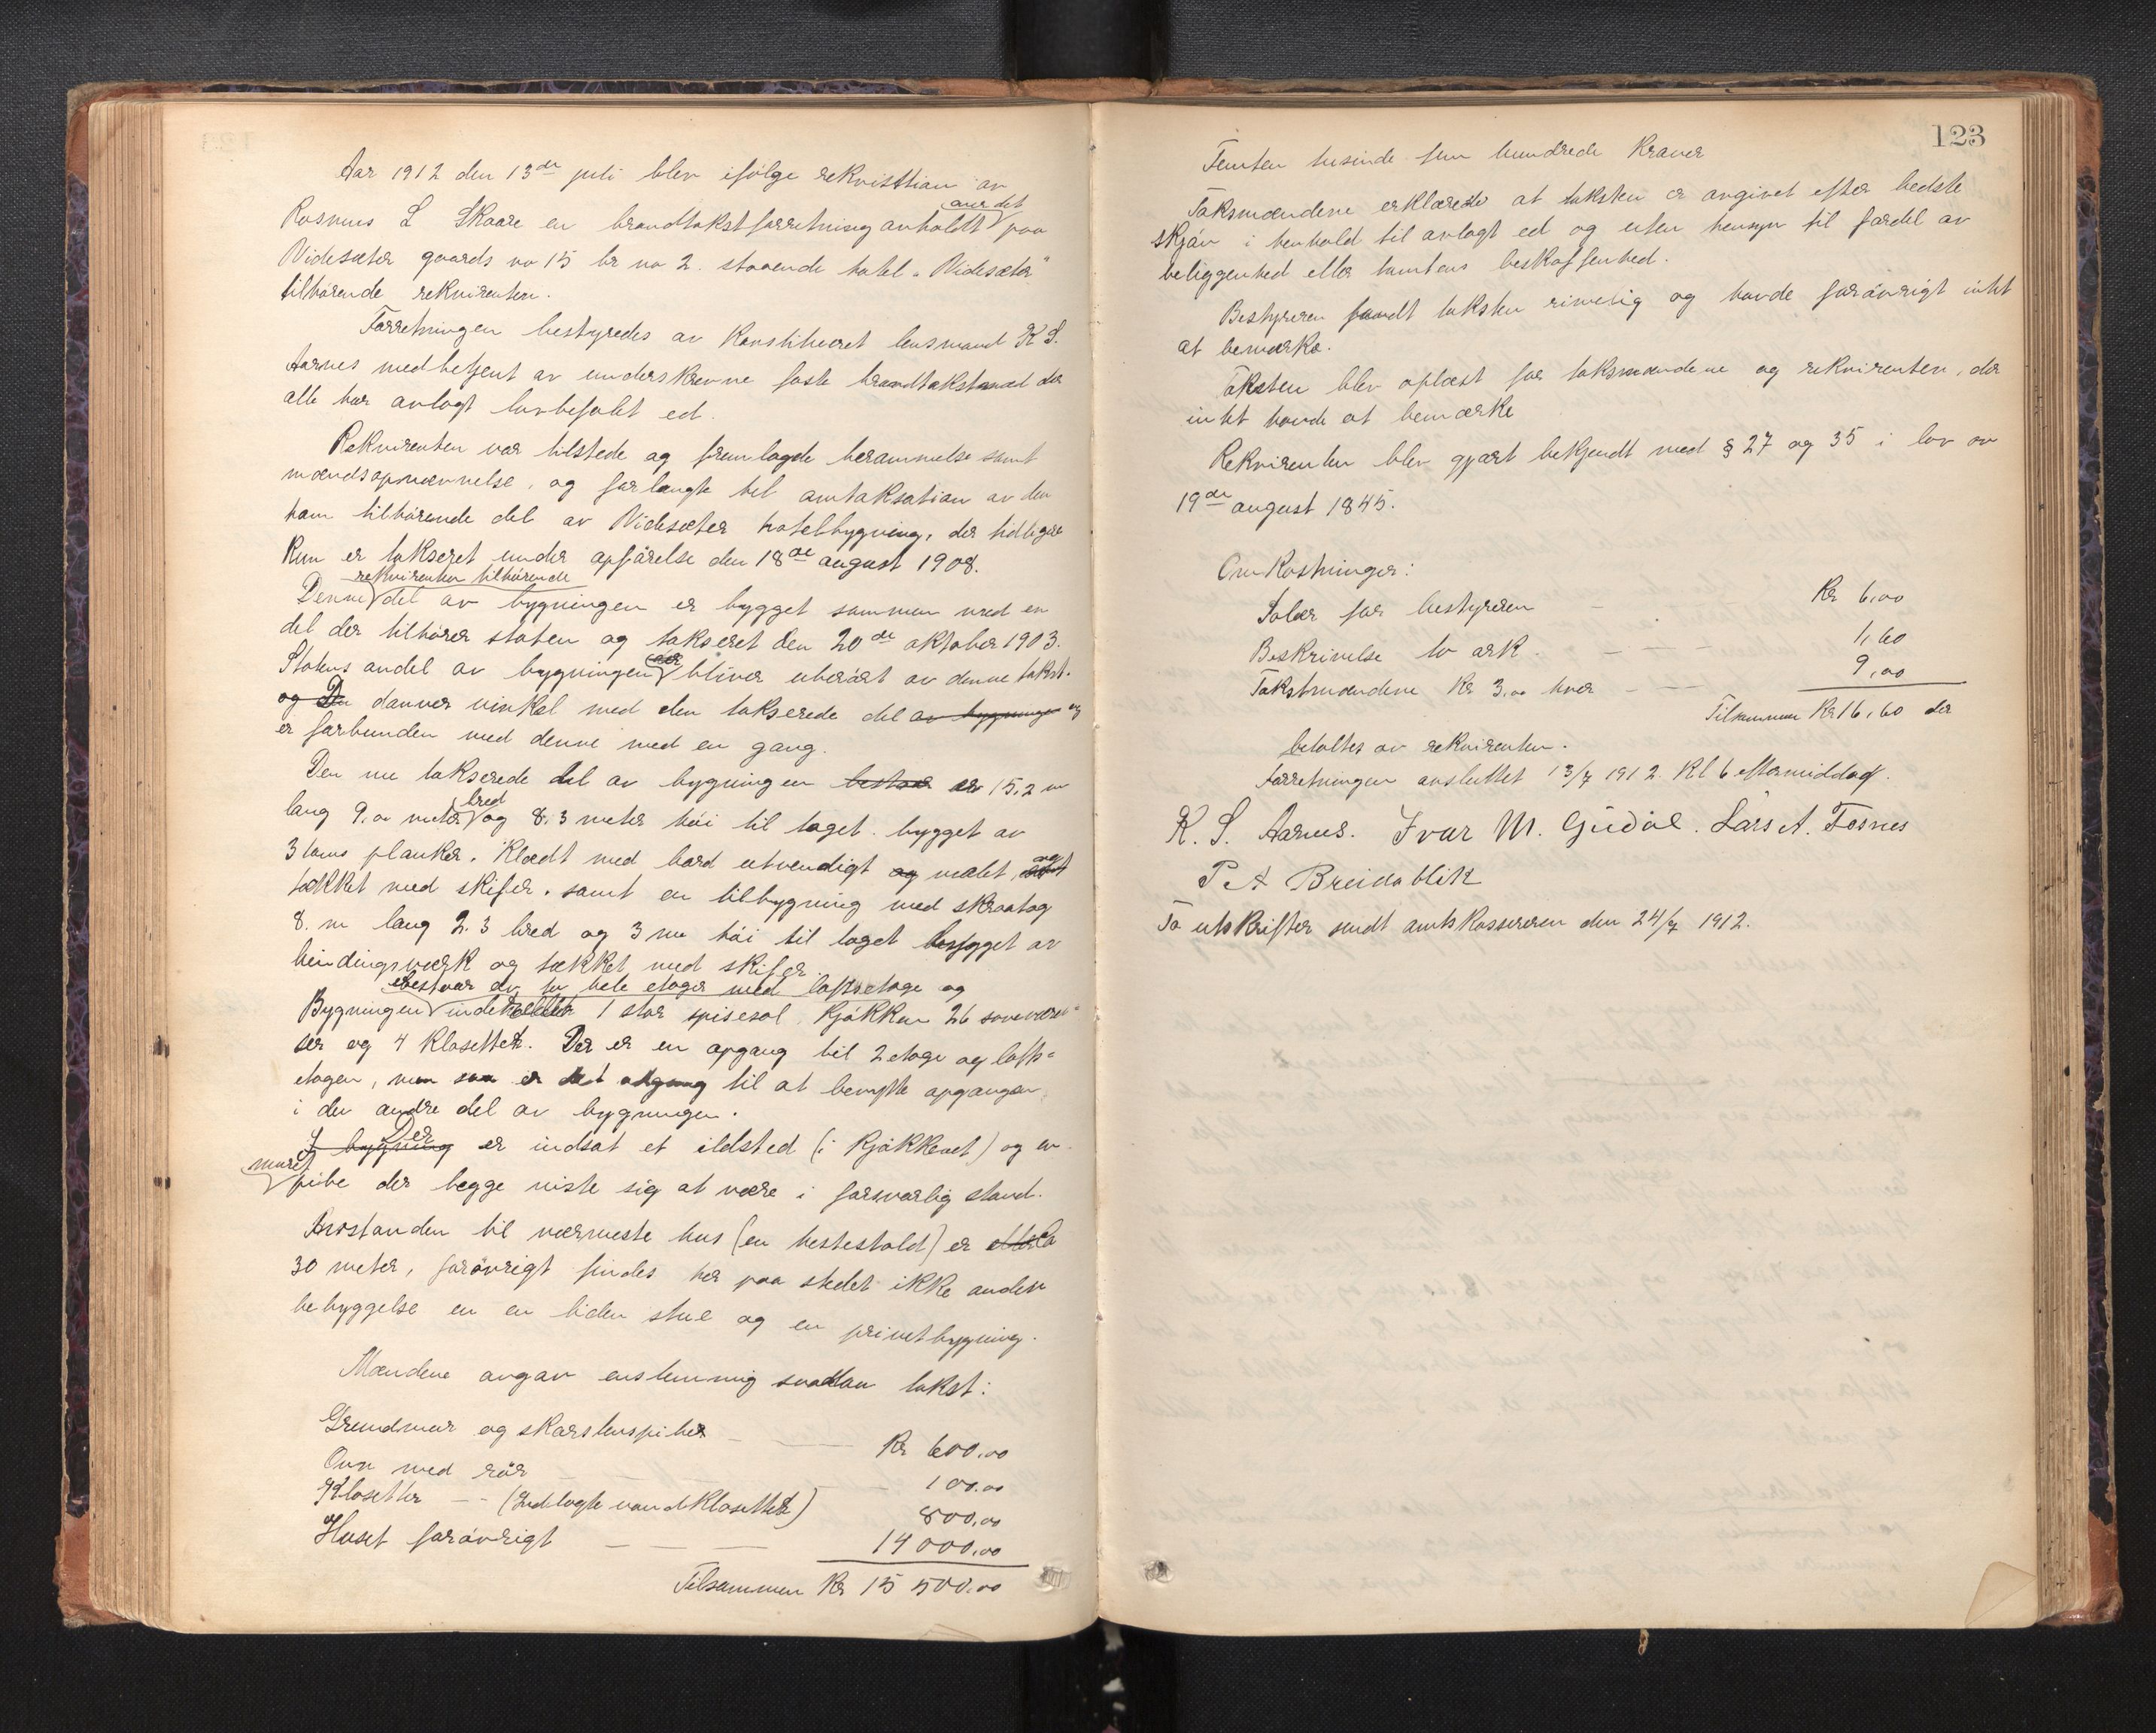 Aar 1912 den 13de juli blev ifølge rekvisition av
over det
Rasmus L Skaare en brandtakstforretning avholdt paa
Videsæter gaards no 15 br no 2. staaende hotel „Videsæter"
tilhørende rekvirenten.
Forretningen bestyredes av konstitueret lensmand K S.
Aarnes medbetjent av underskrevne faste brandtakstmænd der
alle har avlagt lovbefalet ed.
Rekvirenten var tilstede og fremlagde berammelse samt
mændsopnævnelse, og forlangte til omtaksation av den
ham tilhørende del av Videsæter hotelbygning, der tidligere
kun er takseret under opførelse den 18de august 1908.
rekvirenten tilhørende
Denne del av bygningen er bygget sammen med en
del der tilhører staten og takseret den 20de oktober 1903.
Statens andel av bygningen bliver uberørt av denne takst.
og Den danner vinkel med den takserede del av bygningen og
er forbunden med denne med en gang.
Den nu takserede del av bygningen bestaar er 15,2 m
bred
lang 9,0 meter og 8.3 meter høi til taget. bygget av
3 toms planker. Klædt med bord utvendigt og malet, og
tækket med skifer. samt en tilbygning med skraatag
8. m lang 2.3 bred og 3 m høi til taget bygget av
bindingsværk og tækket med skifer.
bestaar av to hele etager med loftsetage og
Bygningen indeholder 1 stor spisesal, kjøkken 26 soveværel-
ser og 4 klosetter. Der er en opgang til 2 etage og lofts-
etagen, men saa er det adgang til at benytte opgangen
i den andre del av bygningen.
Der
I bygning er indsat et ildsted (i kjøkkenet) og en
muret
pibe der begge viste sig at være i forsvarlig stand.
Avstanden til nærmeste hus (en hestestald) er ca
30 meter, forøvrigt findes her paa stedet ikke anden
bebyggelse en en liden stue og en privetbygning.
Mændene avgav enstemmig saadan takst:
Grundmur og skorstenspiber — — Kr 600,00
Ovn med rør — — — 100.00
Klosetter — - (Indlagte vandklosetter) 800,00
Huset forøvrigt — — — 14 000,00
Tilsammen Kr 15 500,00
123
Femten tusinde fem hundrede kroner
Taksmændene erklærede at taksten er avgivet efter bedste
skjøn i henhold til avlagt ed og uten hensyn til fordel av
beliggenhed eller tomtens beskaffenhed.
Bestyreren fandt taksten rimelig og havde forøvrigt intet
at bemærke.
Taksten blev oplæst for taksmændene og rekvirenten, der
intet havde at bemærke
Rekvirenten blev gjort bekjendt med § 27 og 35 i lov av
19de august 1845.
Omkostninger:
Salær for bestyreren — Kr 6,00
Beskrivelse to ark. — — — 1,60
Takstmændene Kr 3,00 hver — — 9,00
Tilsammen Kr 16,60 der
betaltes av rekvirenten.
Forretningen avsluttet 13/7 1912. Kl 6 eftermiddag.
K. S. Aarnes. Ivar M. Gudøl. Lars A. Fosnes
P A Breidablik
To utskrifter sendt amtskassereren den 24/7 1912.